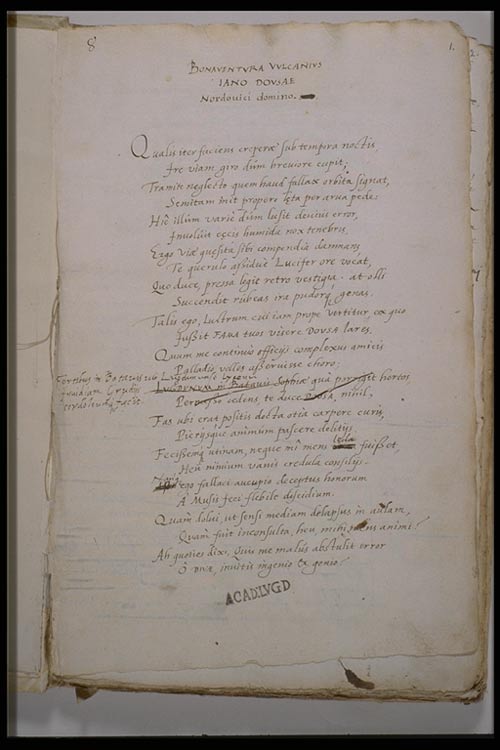 8
1.
BONAVENTVRA VVLCANIVS
IANO DOVSAE
Nordovici domino.
Qualis iter faciens creperæ sub tempora noctis,
Ire viam giro dum breviore cupit;
Tramite neglecto quem haud fallax orbita signat,
Semitam init propero læta per arva pede:
Hic illum varie dum lusit devius error,
Involvit cæcis humida nox tenebris,
Ergo viæ quæsita sibi compendia damnans
Te querulo assidue Lucifer ore vocat,
Quo duce, pressa legit retro vestigia. at olli
Succendit rubeas ira pudorq; genas.
Talis ego, Lustrum cui iam prope vertitur, ex quo
Iussit FAMA tuos visere DOVSA lares,
Quum me continuo officijs complexus amicis
Palladis velles asseruisse choro;
LVGDVNVM in Batavis Sophiæ qua porrigit hortos,
cedens, te duce DOVSA, nihil,
Fas ubi erat positis docta otia carpere curis,
Pierijsque animum pascere delitijs.
Fecissemq utinam, neque mi mens fuisset,
Heu nimium vanis credula consilijs.
ego fallaci aucupio deceptus honorum
A Musis feci flebile discidium.
Quam dolui, ut sensi mediam delapsus in aulam,
Quam fuit inconsulta, heu, mihi mens animi!
Ah quoties dixi, Quis me malus abstulit error
O DIVÆ, invitis ingenio & genio?
ACAD.LVGD